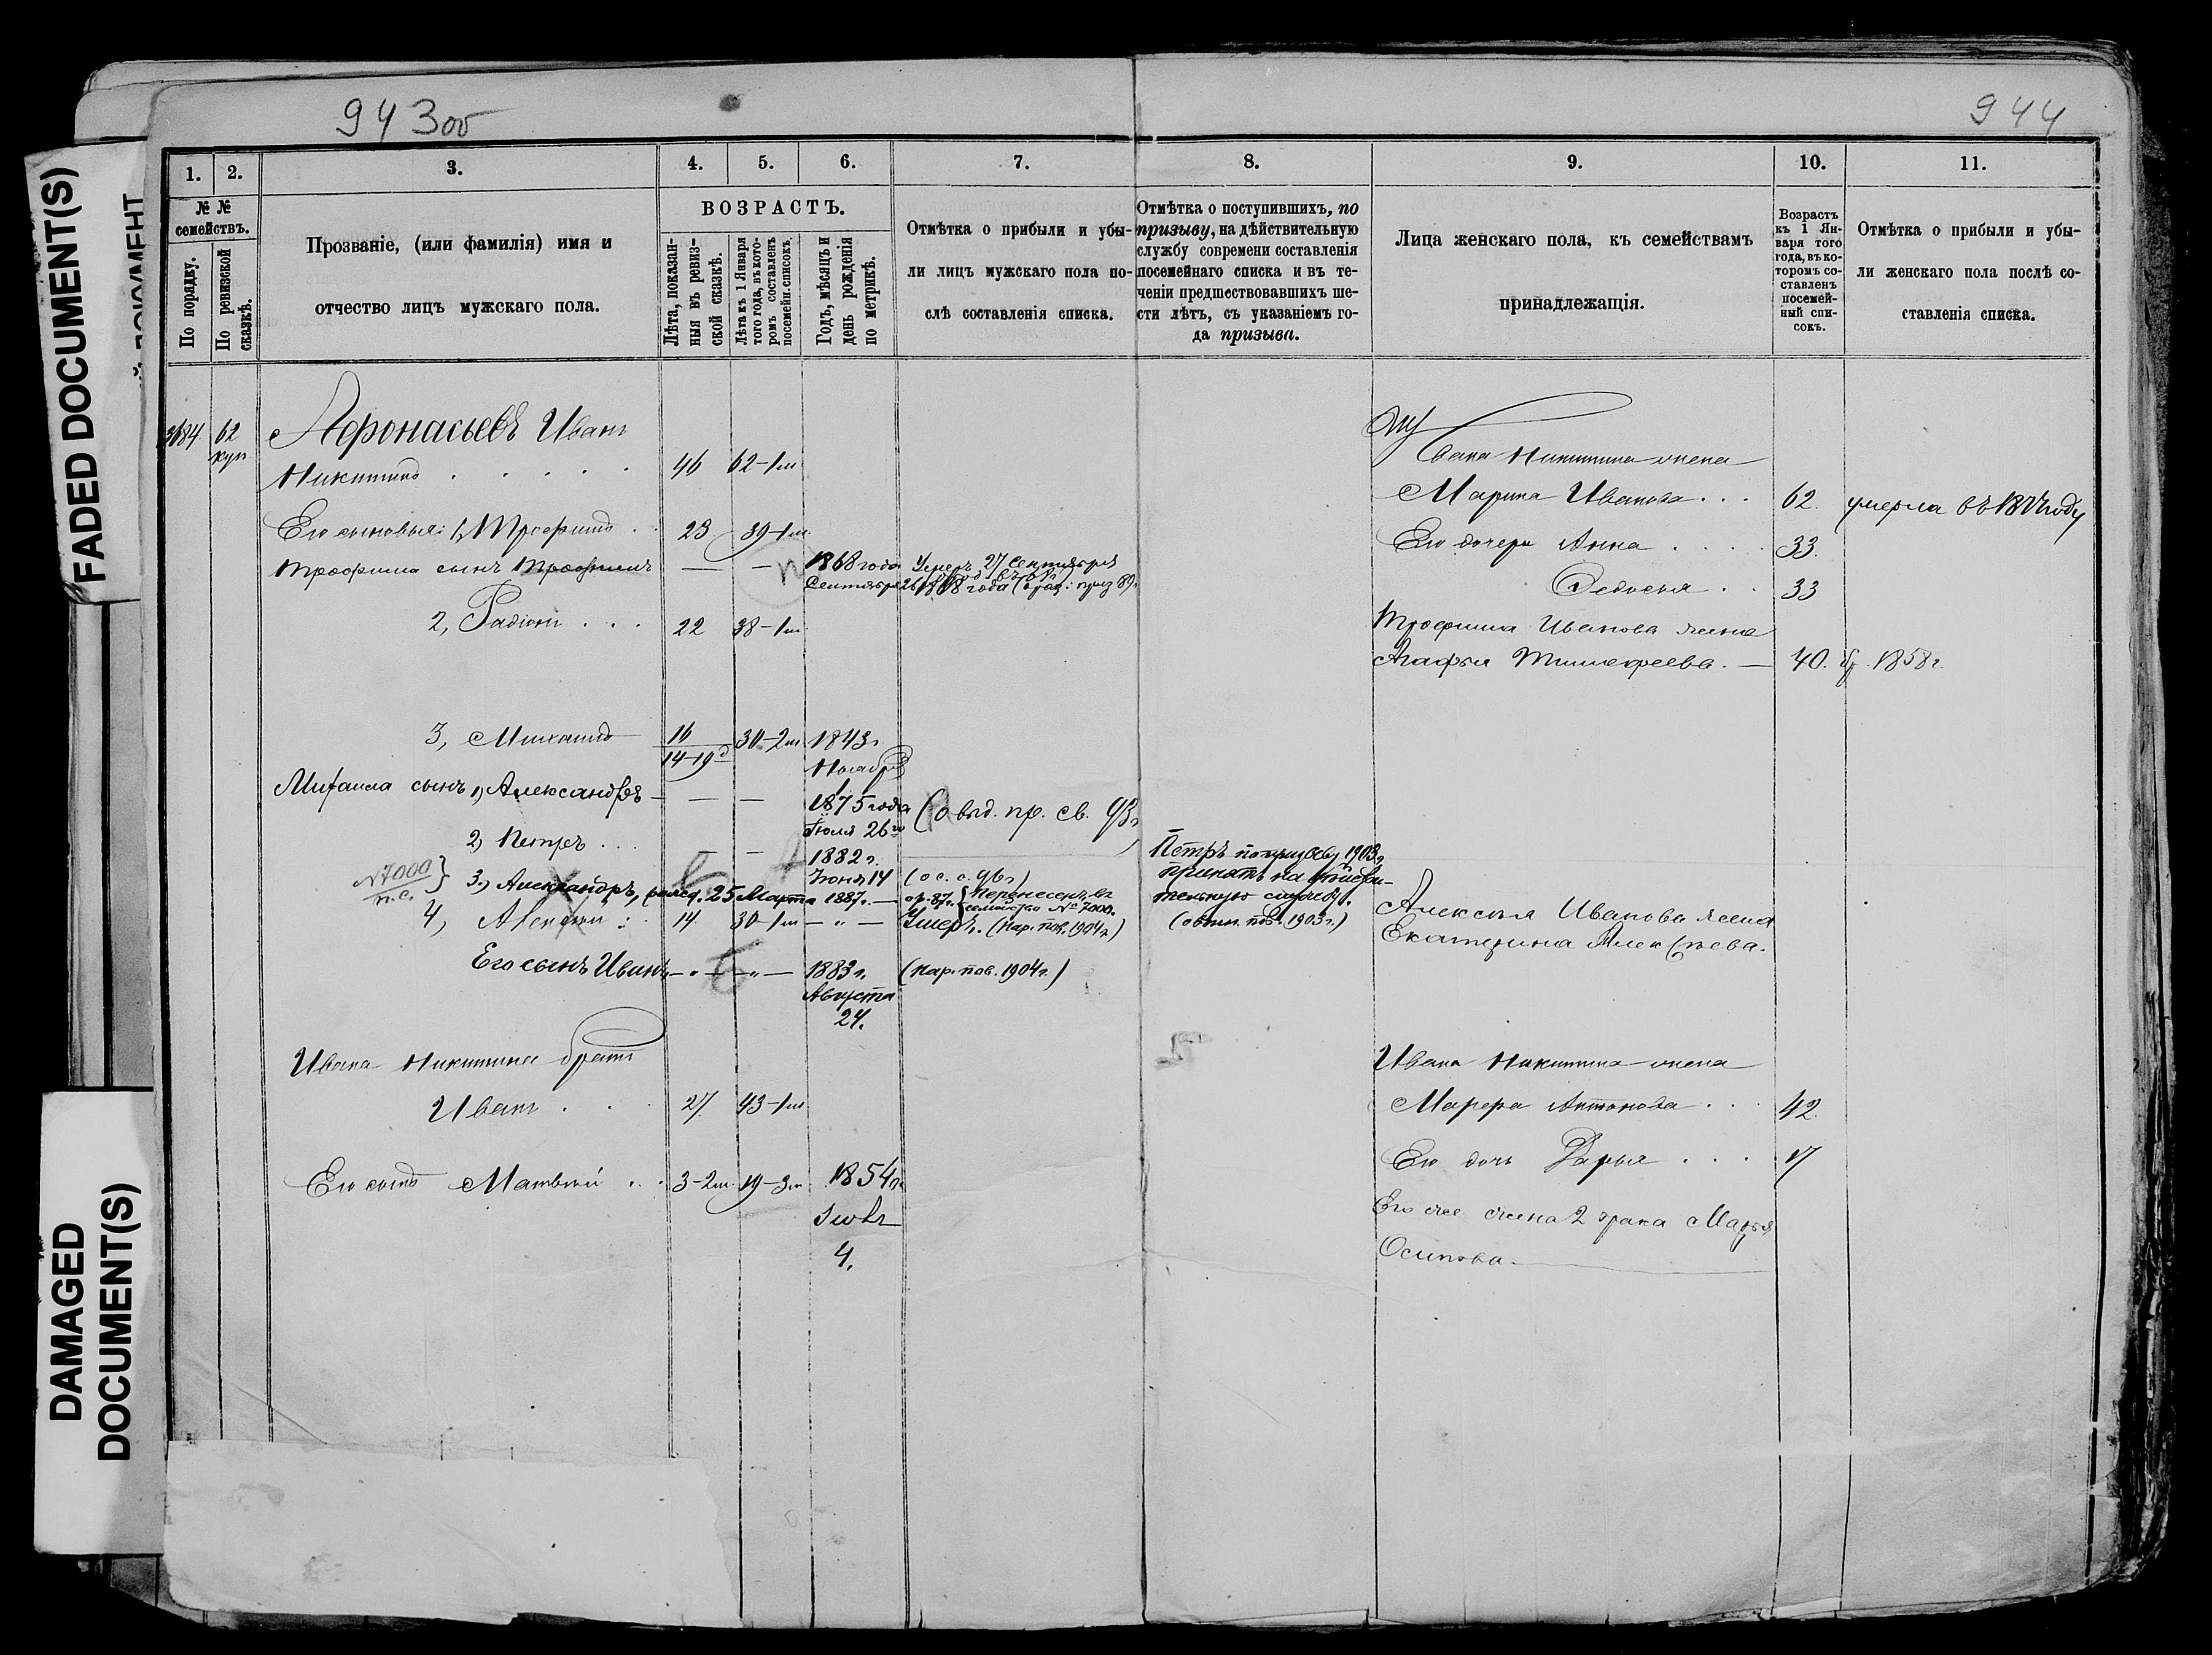 943 об
944
FADED DOCUMENT(S)
DAMAGED
DOCUMENT(S)
1.
2.
3.
4.
5.
6.
7.
8.
9.
10.
11.
№ №
семействъ.
По порядку.
По ревизской
сказкѣ.
Прозваніе, (или фамилія) имя и
отчество лицъ мужскаго пола.
ВОЗРАСТЪ.
Лѣта, показан-
ныя въ ревиз-
ской сказкѣ.
Лѣта къ 1 Января
того года, въ кото-
ромъ составленъ
посемейн. списокъ.
Годъ, мѣсяцъ и
день рожденія
по метрикѣ.
Отмѣтка о прибыли и убы-
ли лицъ мужскаго пола по-
слѣ составленія списка.
Отмѣтка о поступившихъ, по
призыву, на дѣйствительную
службу современи составленія
посемейнаго списка и въ те-
ченіи предшествовавшихъ ше-
сти лѣтъ, съ указаніемъ го-
да призыва.
Лица женскаго пола, къ семействамъ
принадлежащія.
Возрастъ
къ 1 Ян-
варя того
года, въ ко-
торомъ со-
ставленъ
посемей-
ный спи-
сокъ.
Отмѣтка о прибыли и убы-
ли женскаго пола послѣ со-
ставленія списка.
3684 62 Афонасьевъ Иванъ
куп
Никитинъ 46 62-1м
Ивана Никитина жена
Марина Иванова 62. умерла въ году
Его сыновья: 1, Трофимъ 23 39-1м
Его дочери Анна 33.
Трофима сынъ Трофимъ — — 1868 года Умеръ 27 Сентября
Сентября 26 1868 года
Федосья 33
2, Радіонъ 22 38-1м
Трофима Иванова жена
Агафья Тимофеева. — 40. 1858г.
3, Михаилъ 16 30-2м 1843г.
14-19д Ноября
Михаила сынъ 1) Александръ — — — 1875 года (о выд. пр. св. 93г.
Іюля 26го
2) Петръ — — 1882г.
Іюня 14 (о с. с. 96г)
Петръ по призыву 1903г.
принятъ на дѣйстви-
тельную службу.
(овтн. пов. 1903г.)
№7000
п.с.
3.) Александръ, 25 Марта 1887г. — ар. 87г. Перенесенъ въ
семейство № 7000.
4, Алексѣй 14 30-1м — " — Умеръ. (Нар. пов. 1904г)
Алексѣя Иванова жена
Екатерина Алексѣева.
Его сынъ Иванъ — " — — " — 1883г. (Нар. пов. 1904г.)
Августа
24.
Ивана Никитина братъ
Иванъ 27 43-1м
Ивана Никитина жена
Марфа Антонова 42.
Его дочь Дарья 17
Его сынъ Матвѣй 3-2м. 19-3м 1854г.
Іюля
4.
Его же жена 2 брака Марья
Осипова